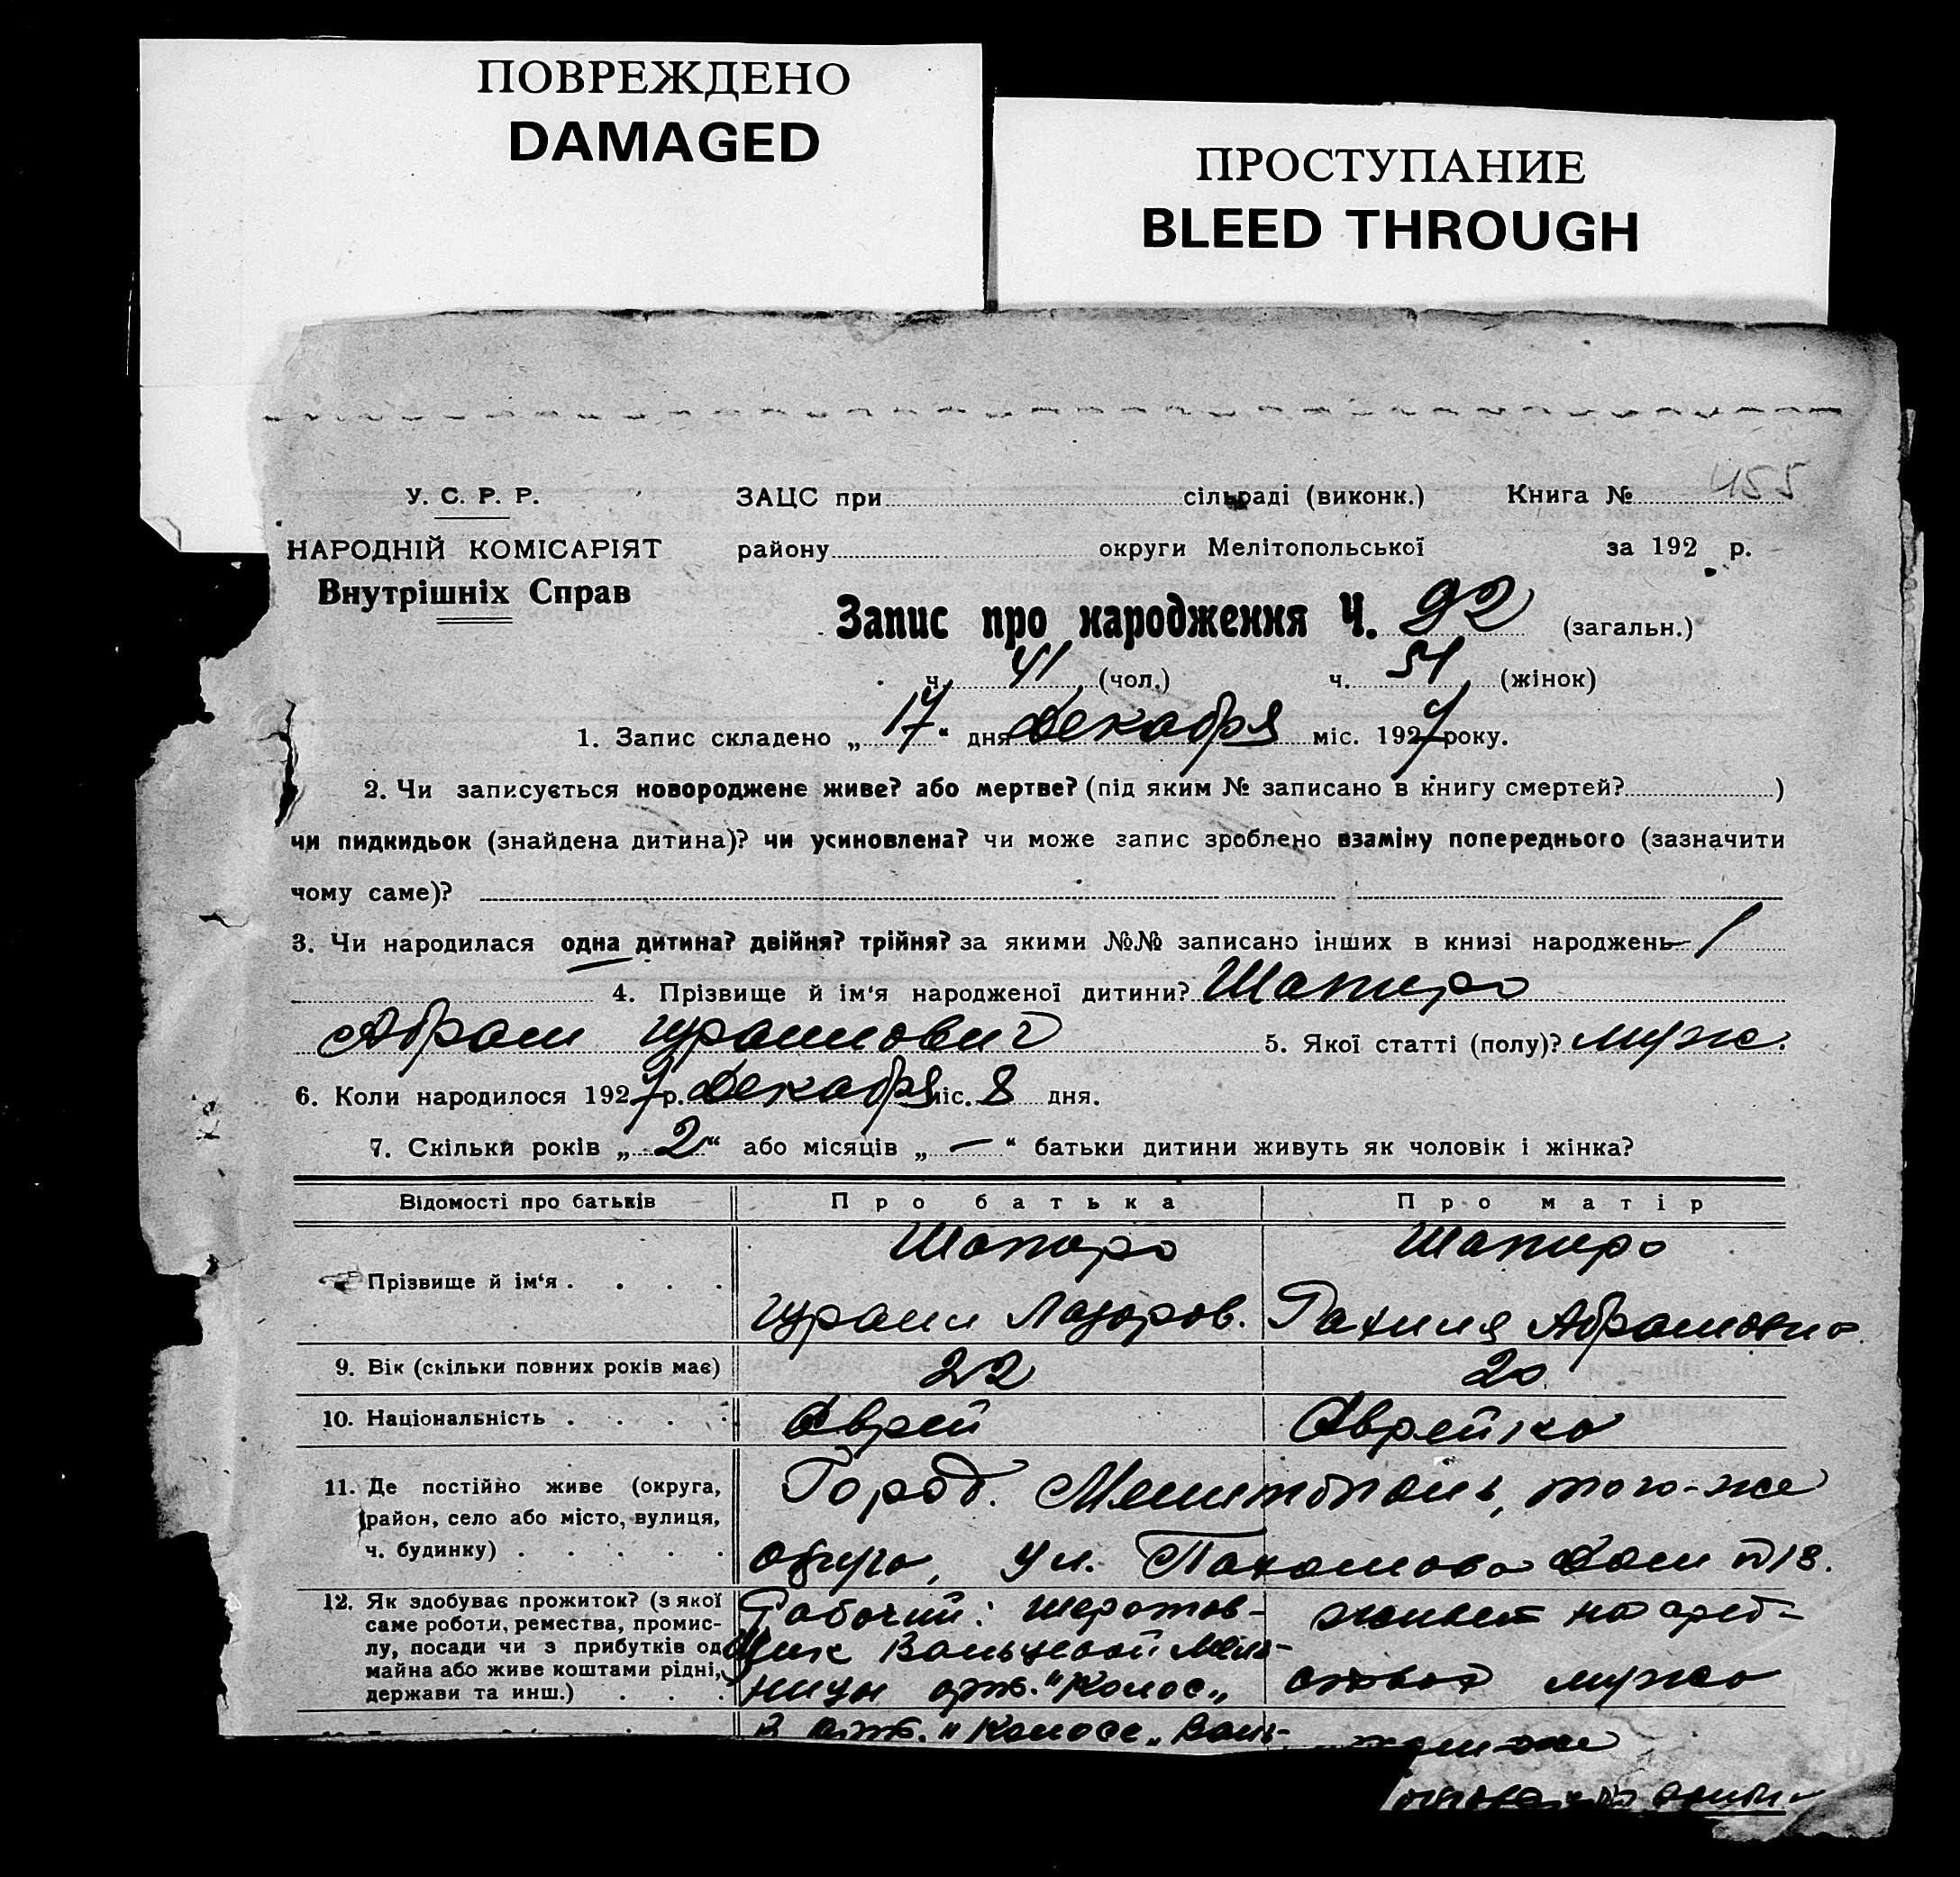 ПОВРЕЖДЕНО
DAMAGED
ПРОСТУПАНИЕ
BLEED THROUGH
У. С. Р. Р. ЗАЦС при сільраді (виконк.) Книга № 455
НАРОДНІЙ КОМІСАРІЯТ району округи Мелітопольської за 192 р.
Внутрішніх Справ
Запис про народження Ч. 92 (загальн.)
ч. 41 (чол.) ч. 51 (жінок)
1. Запис складено „17“ дня Декабря міс. 1927 року.
2. Чи записується новороджене живе? або мертве? (під яким № записано в книгу смертей? )
чи пидкидьок (знайдена дитина)? чи усиновлена? чи може запис зроблено взаміну попереднього (зазначити
чому саме)?
3. Чи народилася одна дитина? двійня? трійня? за якими №№ записано інших в книзі народжень 1
4. Прізвище й ім‘я народженої дитини? Шапиро
Абрам Ирамович 5. Якої статті (полу)? муж.
6. Коли народилося 1927 р. Декабря міс. 8 дня.
7. Скільки років „2“ або місяців „—“ батьки дитини живуть як чоловік і жінка?
Відомості про батьків Про батька Про матір
Шапиро Шапиро
Прізвище й ім‘я . . . .
Ирам Лазоров. Рахиля Абрамовна
9. Вік (скільки повних років має) 22 20
10. Національність . . . . Еврей Еврейка
11. Де постійно живе (округа, район, село або місто, вулиця, ч. будинку) . . . . .
Город. Мелитополь, того-же
округа, ул. Пахомова Дом № 18.
12. Як здобуває прожиток? (з якої
саме роботи, ремества, промис-
лу, посади чи з прибутків од
майна або живе коштами рідні,
держави та инш.) . . .
Рабочий: шеретов-
щик Вальцевой Мель-
ницы арт. "Колос„
живет на сред-
ства мужа
В арт. "Колосе„ Валь-